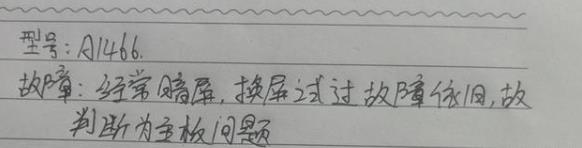 型号:A1466.
故障:经常暗屏,换屏试过故障依旧,故
判断为主板问题